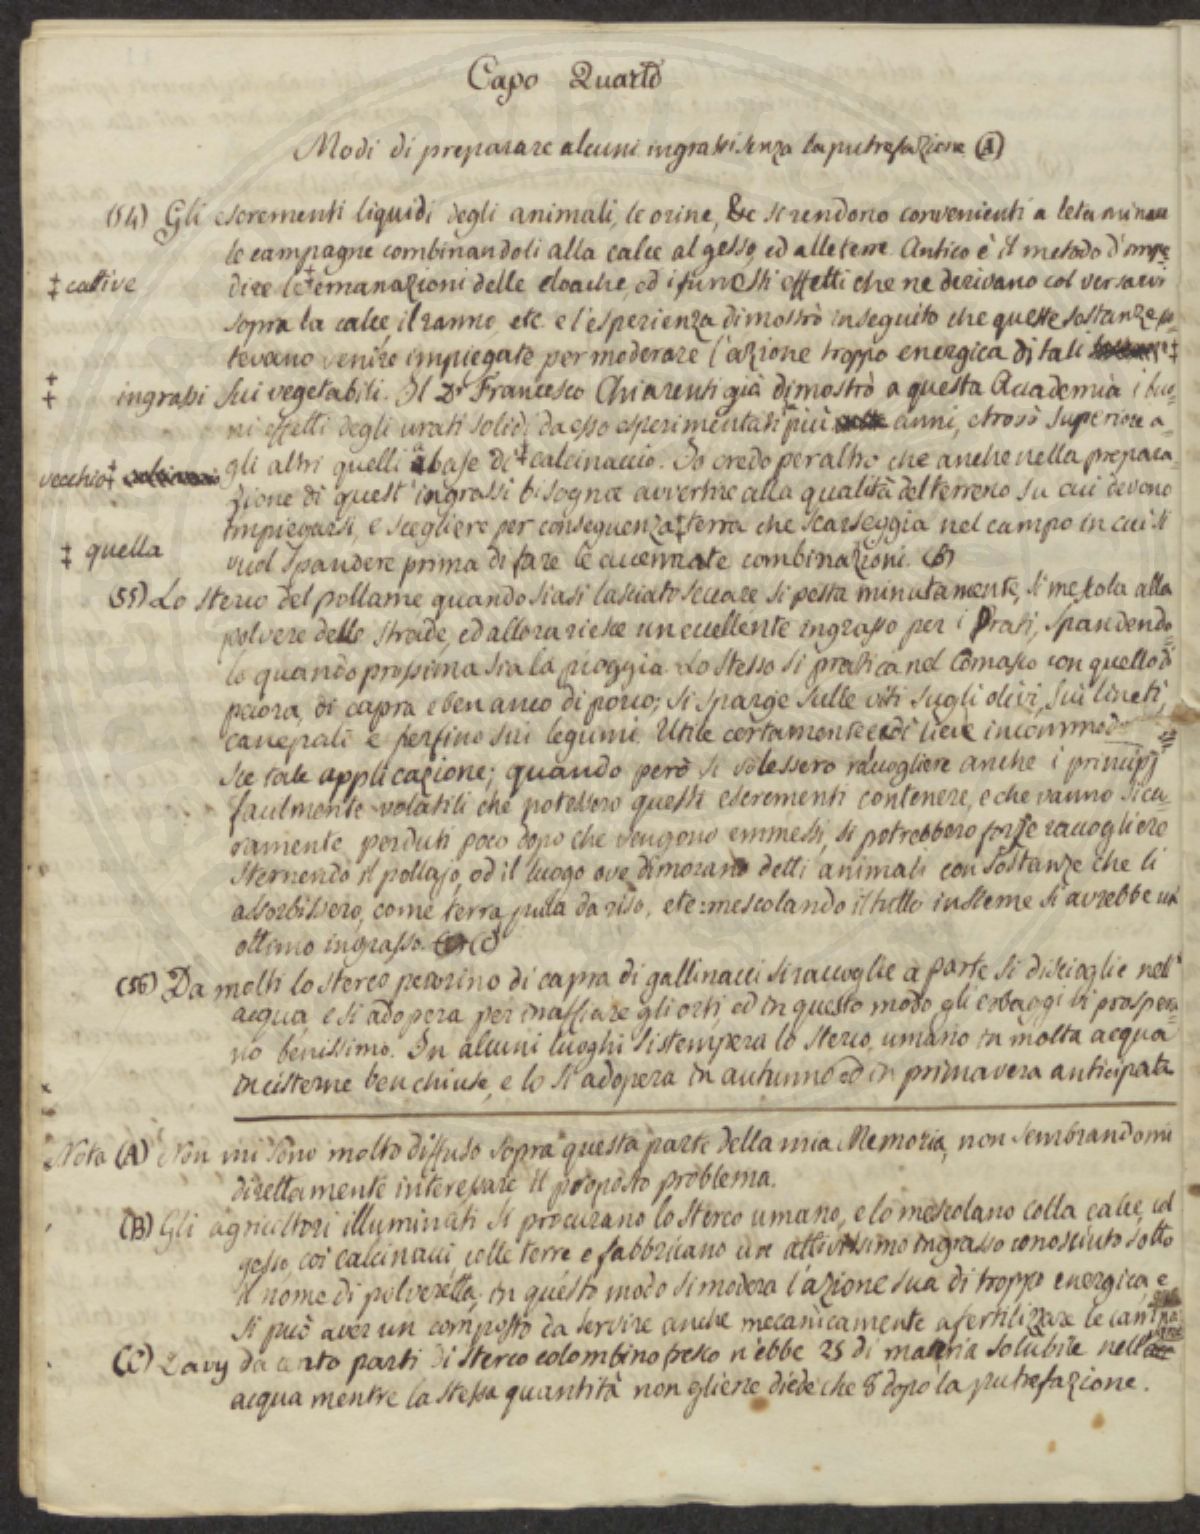 Capo Quarto
Modi di preparare alcuni ingrassi senza la putrefazione (A)
(54) Gli escrementi liquidi degli animali, le orine, &c si rendono convenienti a letaminare
le campagne combinandoli alla calce al gesso, ed alle terre. Antico è il metodo d'impe=
‡ cattive
dire le ‡ emanazioni delle cloache, ed i funesti effetti che ne derivano col versarvi
sopra la calce, il ranno, etc. e l'esperienza dimostrò in seguito che queste sostanze po=
tevano venire impiegate per moderare l'azione troppo energica di tali ‡
‡ ingrassi sui vegetabili. Il Dr. Francesco Chiarenti già dimostrò a questa Accademia i buo=
ni effetti degli urati solidi da esso esperimentati più anni, e trovò superiore a=
vecchio ‡
gli altri quelli a base di ‡ calcinaccio. Io credo peraltro che anche nella prepara=
zione di quest'ingrassi bisogna avvertire alla qualità del terreno su cui devono
impiegarsi, e scegliere per conseguenza ‡ terra che scarseggia nel campo in cui si
‡ quella
vuol spandere prima di fare le accennate combinazioni. (B)
(55) Lo sterco del pollame quando siasi lasciato seccare si pesta minutamente, si mescola alla
polvere delle strade, ed allora riesce un eccellente ingrasso per i Prati, spandendo=
lo quando prossima sia la pioggia. Lo stesso si pratica nel Comasco con quello di
pecora, di capra e ben anco di porco; si sparge sulle viti sugli olivi, sui lineti,
canepali e perfino sui legumi. Utile certamente e di lieve incommodo
sce tale applicazione; quando però si volessero raccogliere anche i principj
facilmente volatili che potessero questi escrementi contenere, e che vanno sicu=
ramente perduti poco dopo che vengono emmessi, si potrebbero forse raccogliere
sternendo il pollajo, od il luogo ove dimorano detti animali con sostanze che li
assorbissero, come terra, pula da riso, etc: mescolando il tutto insieme si avrebbe un
ottimo ingrasso. (C)
(56) Da molti lo sterco pecorino di capra di gallinacci si raccoglie a parte si discioglie nell'
acqua, e si adopera per inaffiare gli orti, ed in questo modo gli erbaggi vi prospera=
no benissimo. In alcuni luoghi si stempera lo sterco umano in molta acqua
in cisterne ben chiuse, e lo si adopera in autunno ed in primavera anticipata
Nota (A) Non mi sono molto diffuso sopra questa parte della mia Memoria, non sembrandomi
direttamente interessare il proposto problema.
(B) Gli agricoltori illuminati si procurano lo sterco umano, e lo mescolano colla calce, col
gesso, coi calcinacci, colle terre e fabbricano un attivissimo ingrasso conosciuto sotto
il nome di polveretta; in questo modo si modera l'azione sua di troppo energica, e
si può aver un composto da servire anche mecanicamente a fertilizzare le campagne
(C) Davy da cento parti di sterco colombino fresco n'ebbe 25 di materia solubile nell'
acqua mentre la stessa quantità non gliene diede che 8 dopo la putrefazione.